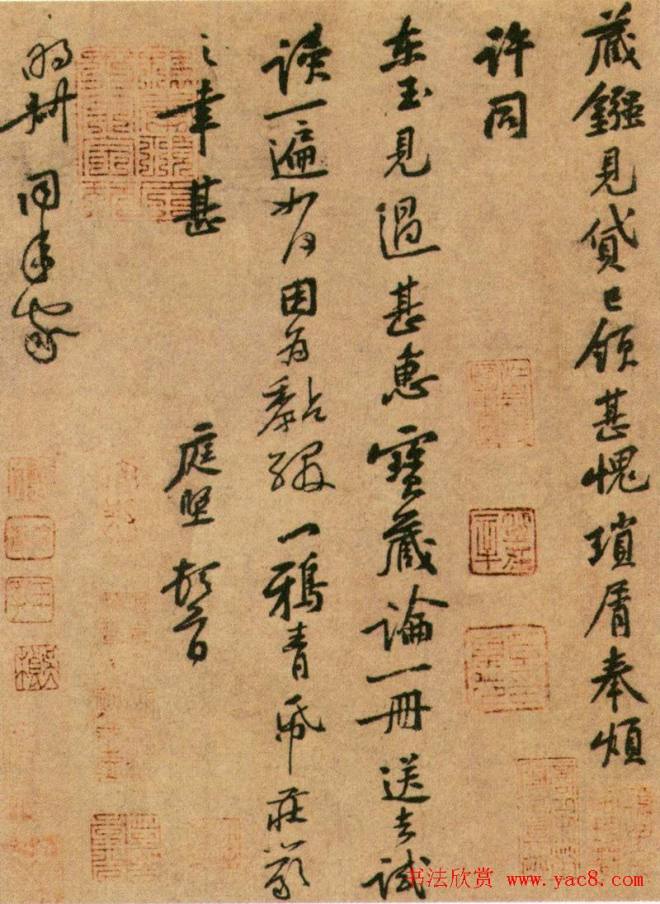 藏鏹見貸已領甚愧瑣屑奉煩
許同
東玉見過甚惠寶藏論一冊送去試
讀一遍如何因為黏綴一鴉青帋莊嚴
之幸甚 庭堅頓首
明叔同年家
书法欣赏 www.yac8.com